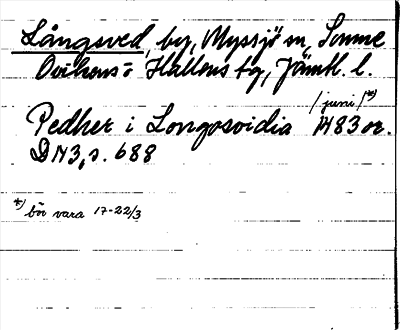 Långsved, by, Myssjö sn, Sunne
Ovikens o Hallens tg, Jämtl. l.
/juni/*)
Pedher i Longosvidia 1483 or.
DN 3, s. 688
*) bör vara 17-22/3